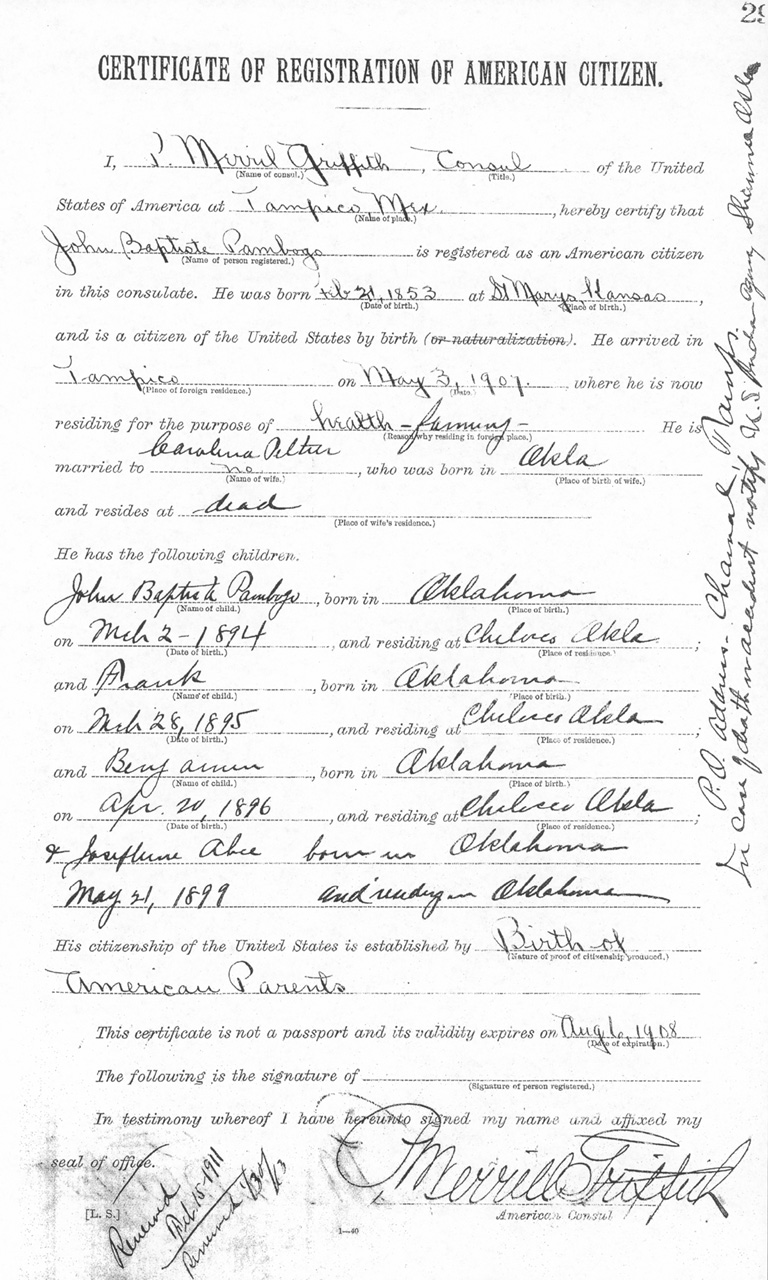 29
CERTIFICATE OF REGISTRATION OF AMERICAN CITIZEN.
I, P. Merrill Griffith, Consul of the United
(Name of consul.) (Title.)
States of America at Tampico, Mex., hereby certify that
(Name of place.)
John Baptiste Pambogo is registered as an American citizen
(Name of person registered.)
in this consulate. He was born Feb 21, 1853 at St Marys, Kansas,
(Date of birth.) (Place of birth.)
and is a citizen of the United States by birth (or naturalization). He arrived in
Tampico on May 3, 1907. where he is now
(Place of foreign residence.) (Date.)
residing for the purpose of health - farming - He is
(Reason why residing in foreign place.)
Carolina Peltier
married to no, who was born in Okla
(Name of wife.) (Place of birth of wife.)
and resides at dead
(Place of wife's residence.)
He has the following children.
John Baptiste Pambogo, born in Oklahoma
(Name of child.) (Place of birth.)
on Mch 2 - 1894, and residing at Okla;
(Date of birth.) (Place of residence.)
and Frank, born in Oklahoma
(Name of child.) (Place of birth.)
on Mch 28, 1895, and residing at Okla
(Date of birth.) (Place of residence.)
and Benjamin, born in Oklahoma
(Name of child.) (Place of birth.)
on Apr. 20, 1896, and residing at Okla;
(Date of birth.) (Place of residence.)
& Josephine born in Oklahoma
May 21, 1899 and residing in Oklahoma
His citizenship of the United States is established by Birth of
(Nature of proof of citizenship produced.)
American Parents
This certificate is not a passport and its validity expires on Aug 6, 1908
(Date of expiration.)
The following is the signature of
(Signature of person registered.)
In testimony whereof I have hereunto signed my name and affixed my
seal of office.
P Merrill Griffith
[L. S.] American Consul
1—40
Renewed
Feb-15-1911
Renewed 1/30/13
P.O. Address - Chamal,
In case of death or accident notify U.S. Indian Agency Shawnee Okla